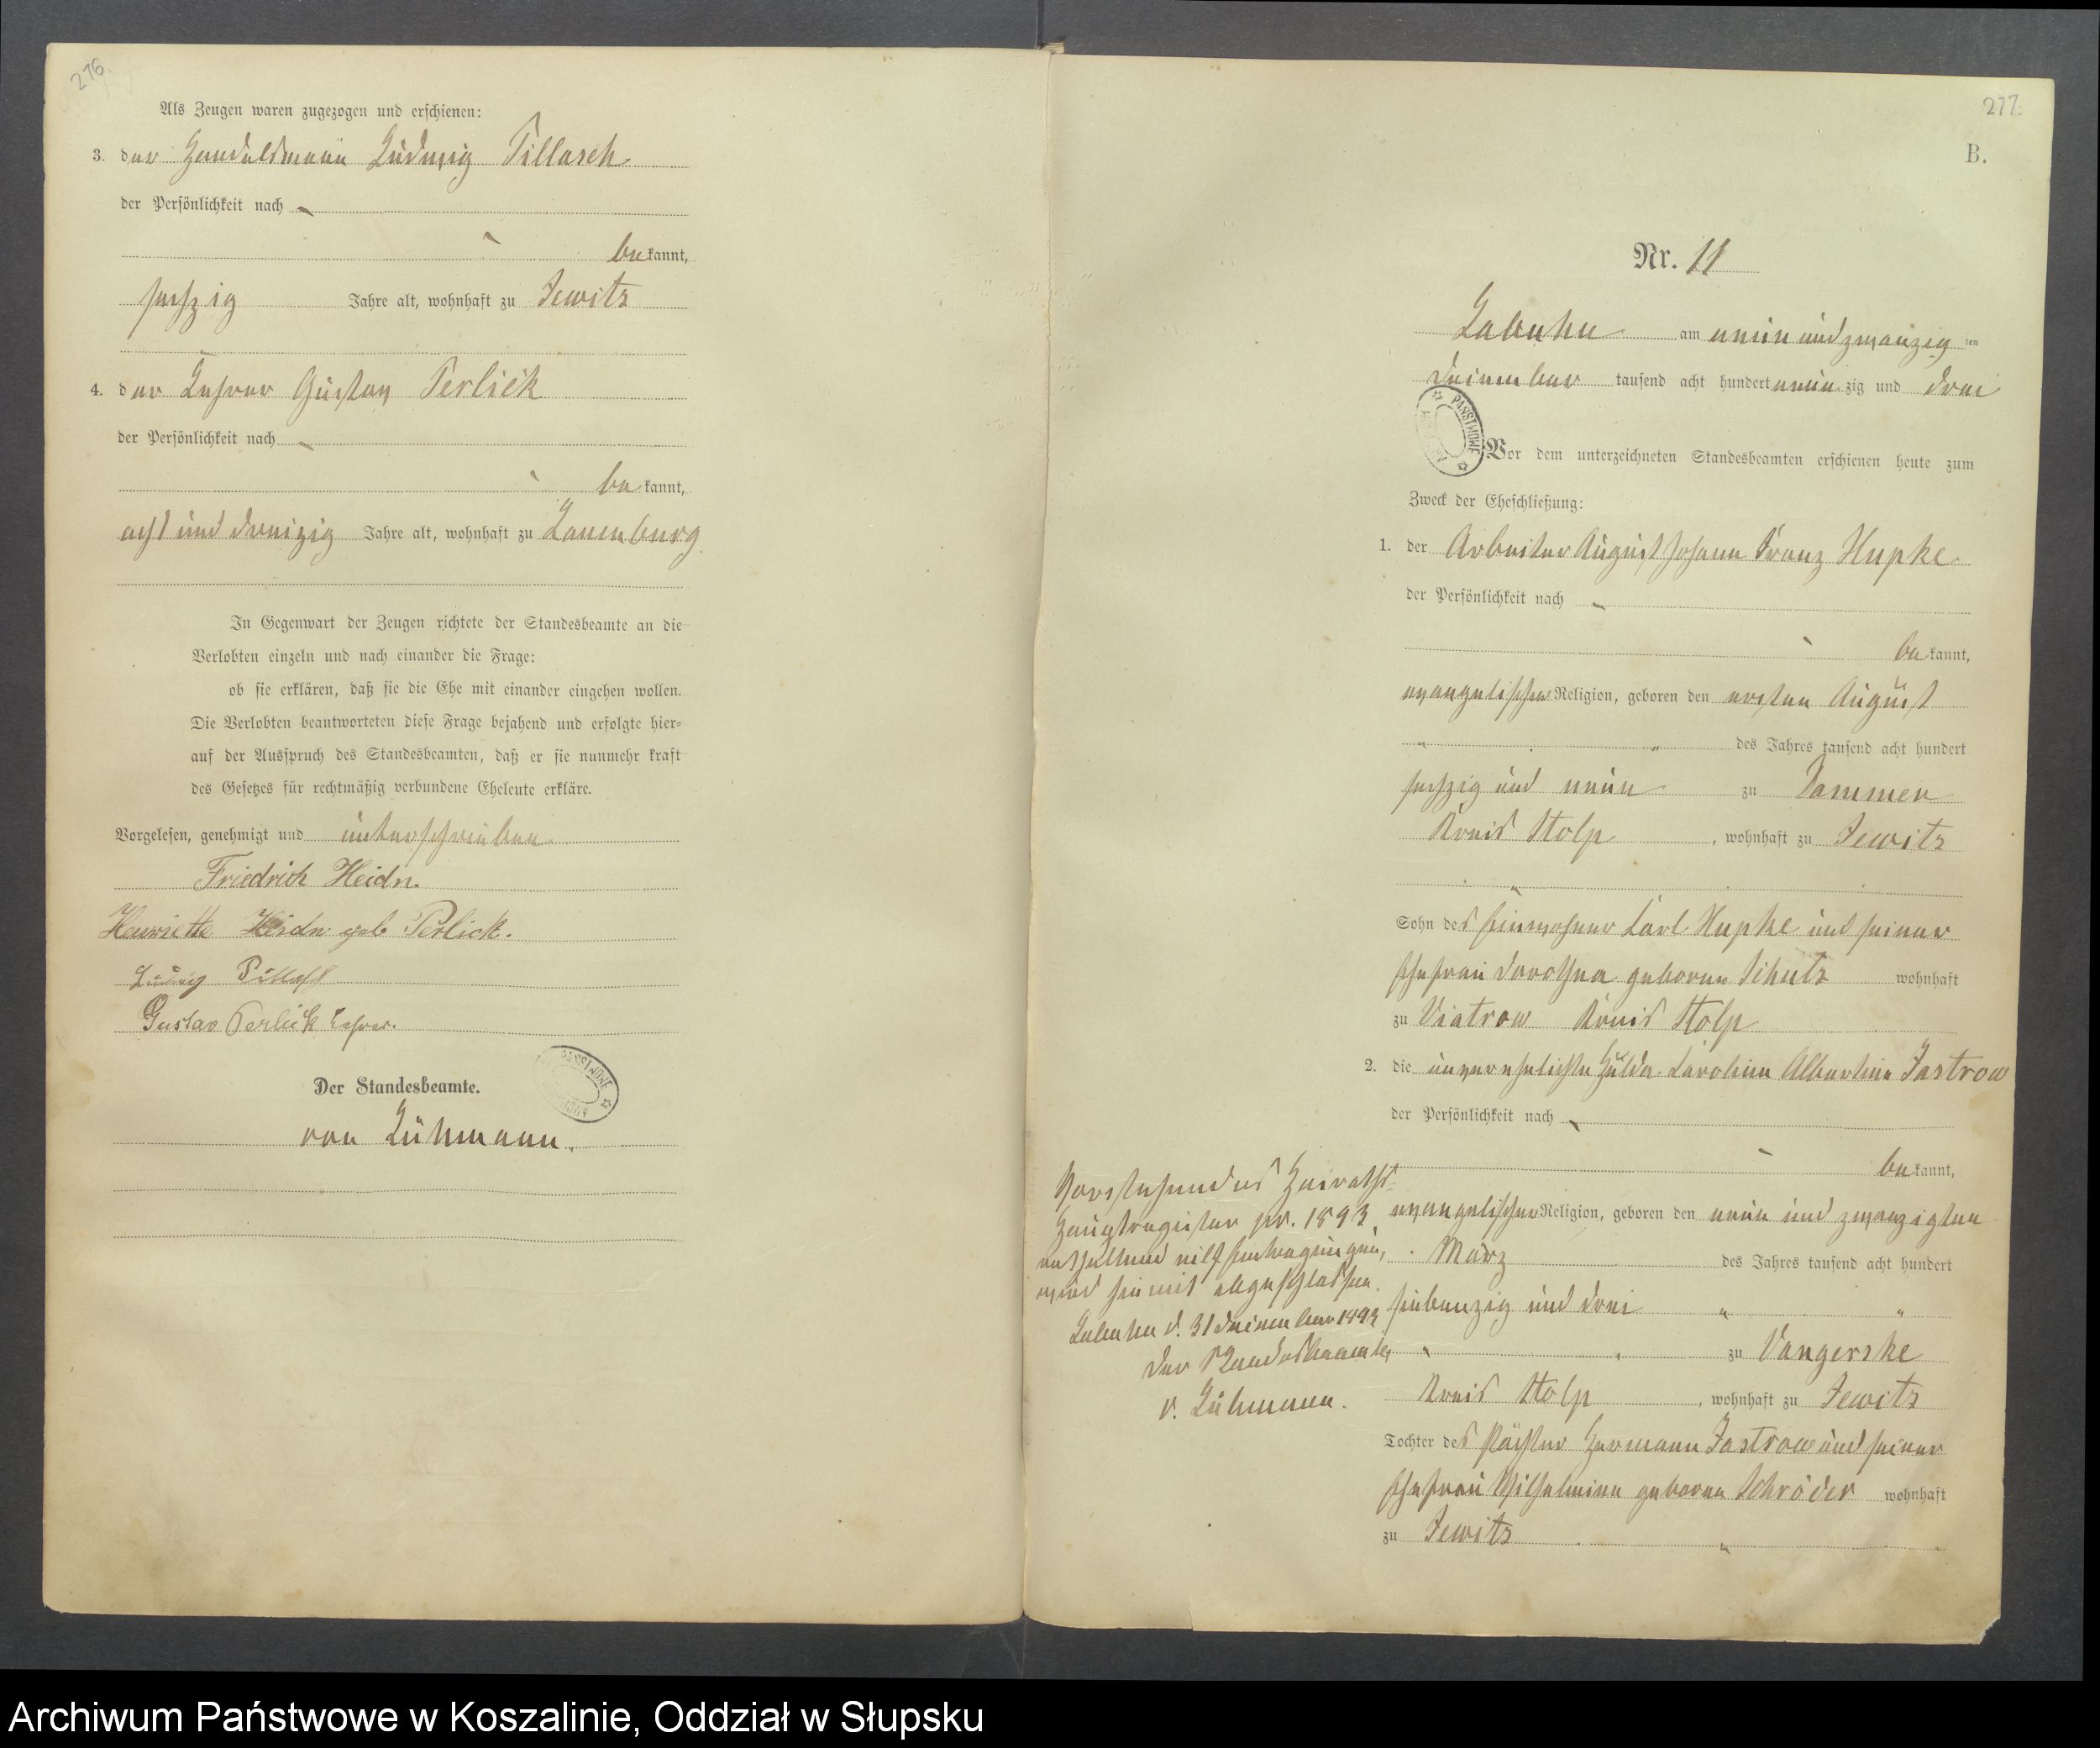 276.
Als Zeugen waren zugezogen und erschienen:
3. der Handelsmann Ludwig Pillasch
der Persönlichkeit nach
bekannt,
sechzig Jahre alt, wohnhaft zu Jewitz
4. der Lehrer Gustav Perlick
der Persönlichkeit nach
bekannt,
acht und dreißig Jahre alt, wohnhaft zu Lauenburg
In Gegenwart der Zeugen richtete der Standesbeamte an die
Verlobten einzeln und nach einander die Frage:
ob sie erklären, daß sie die Ehe mit einander eingehen wollen.
Die Verlobten beantworteten diese Frage bejahend und erfolgte hier-
auf der Ausspruch des Standesbeamten, daß er sie nunmehr kraft
des Gesetzes für rechtmäßig verbundene Eheleute erkläre.
Vorgelesen, genehmigt und unterschrieben
Friedrich Heidn.
Henriette Heidn geb Perlick.
Ludwig Pillasch
Gustav Perlick Lehrer.
Der Standesbeamte.
von Lühmann.
277.
B.
Nr. 11
Labuhn am neun und zwanzig ten
Dezember tausend acht hundert neun zig und drei
PAŃSTWOWE
Vor dem unterzeichneten Standesbeamten erschienen heute zum
Zweck der Eheschließung:
1. der Arbeiter August Johann Franz Hupke
der Persönlichkeit nach
bekannt,
evangelischer Religion, geboren den ersten August
des Jahres tausend acht hundert
sechzig und neun zu Dammen
Kreis Stolp, wohnhaft zu Jewitz
Sohn des Einwohner Carl Hupke und seiner
Ehefrau Dorothea geboren Schulz wohnhaft
zu Viatrow Kreis Stolp
2. die unverehelichte Hulda Caroline Albertine Jastrow
der Persönlichkeit nach
bekannt,
evangelischer Religion, geboren den neun und zwanzigten
März des Jahres tausend acht hundert
siebenzig und drei
zu Vangerske
Kreis Stolp, wohnhaft zu Jewitz
Tochter des Pächter Hermann Jastrow und seiner
Ehefrau Wilhelmine geboren Schröder wohnhaft
zu Jewitz
Vorstehendes Heiraths-
Hauptregister pr. 1893,
enthaltend elf Eintragungen,
wird hiermit abgeschlossen.
Labuhn d. 31 Dezember 1893
Der Standesbeamte
v. Lühmann.
Archiwum Państwowe w Koszalinie, Oddział w Słupsku